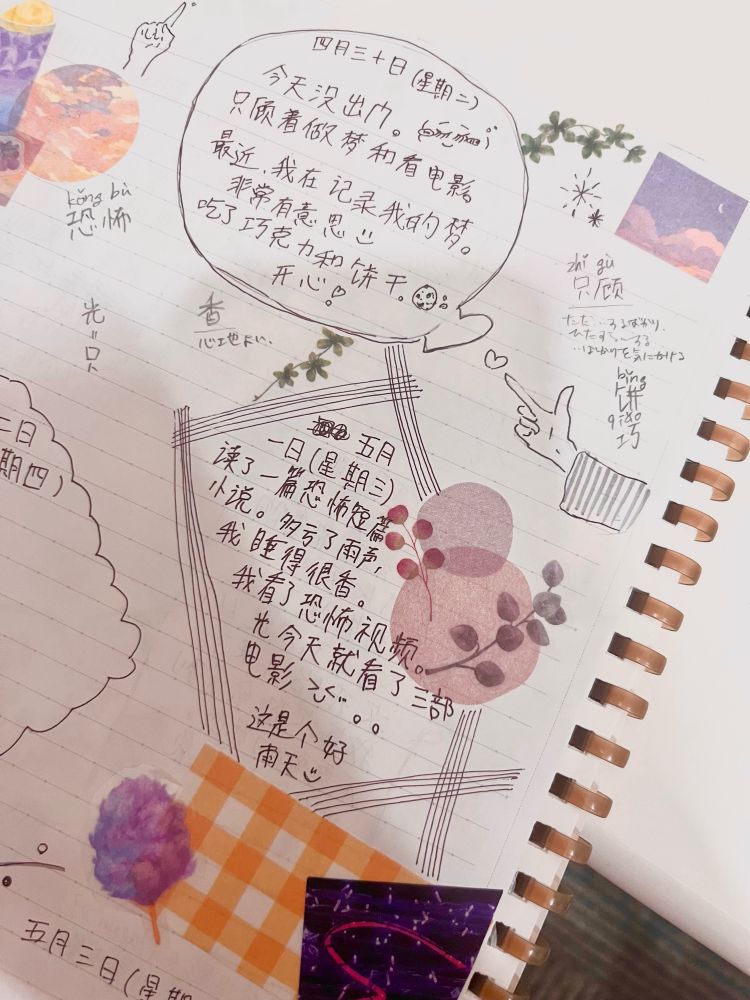 四月三十日(星期二)
今天没出门。
只顾着做梦和看电影。
最近,我在记录我的梦。
非常有意思
吃了巧克力和饼干。
开心!
kǒng bù
恐怖
光=只
香
心地よい
zhǐ gù
只顾
ただ…するばかり、
ひたすら…する
…ばかりを気にかける
bǐng
饼
qiǎo
巧
二日
期四)
五月
一日(星期三)
读了一篇恐怖短篇
小说。多亏了雨声,
我睡得很香。
我看了恐怖视频。
光今天就看了三部
电影
这是个好
雨天
五月三日(星期